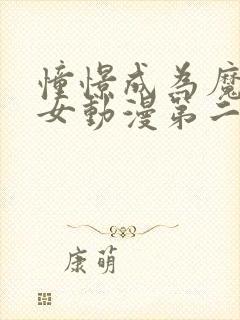 憧憬成為魔
女動漫第二
康萌